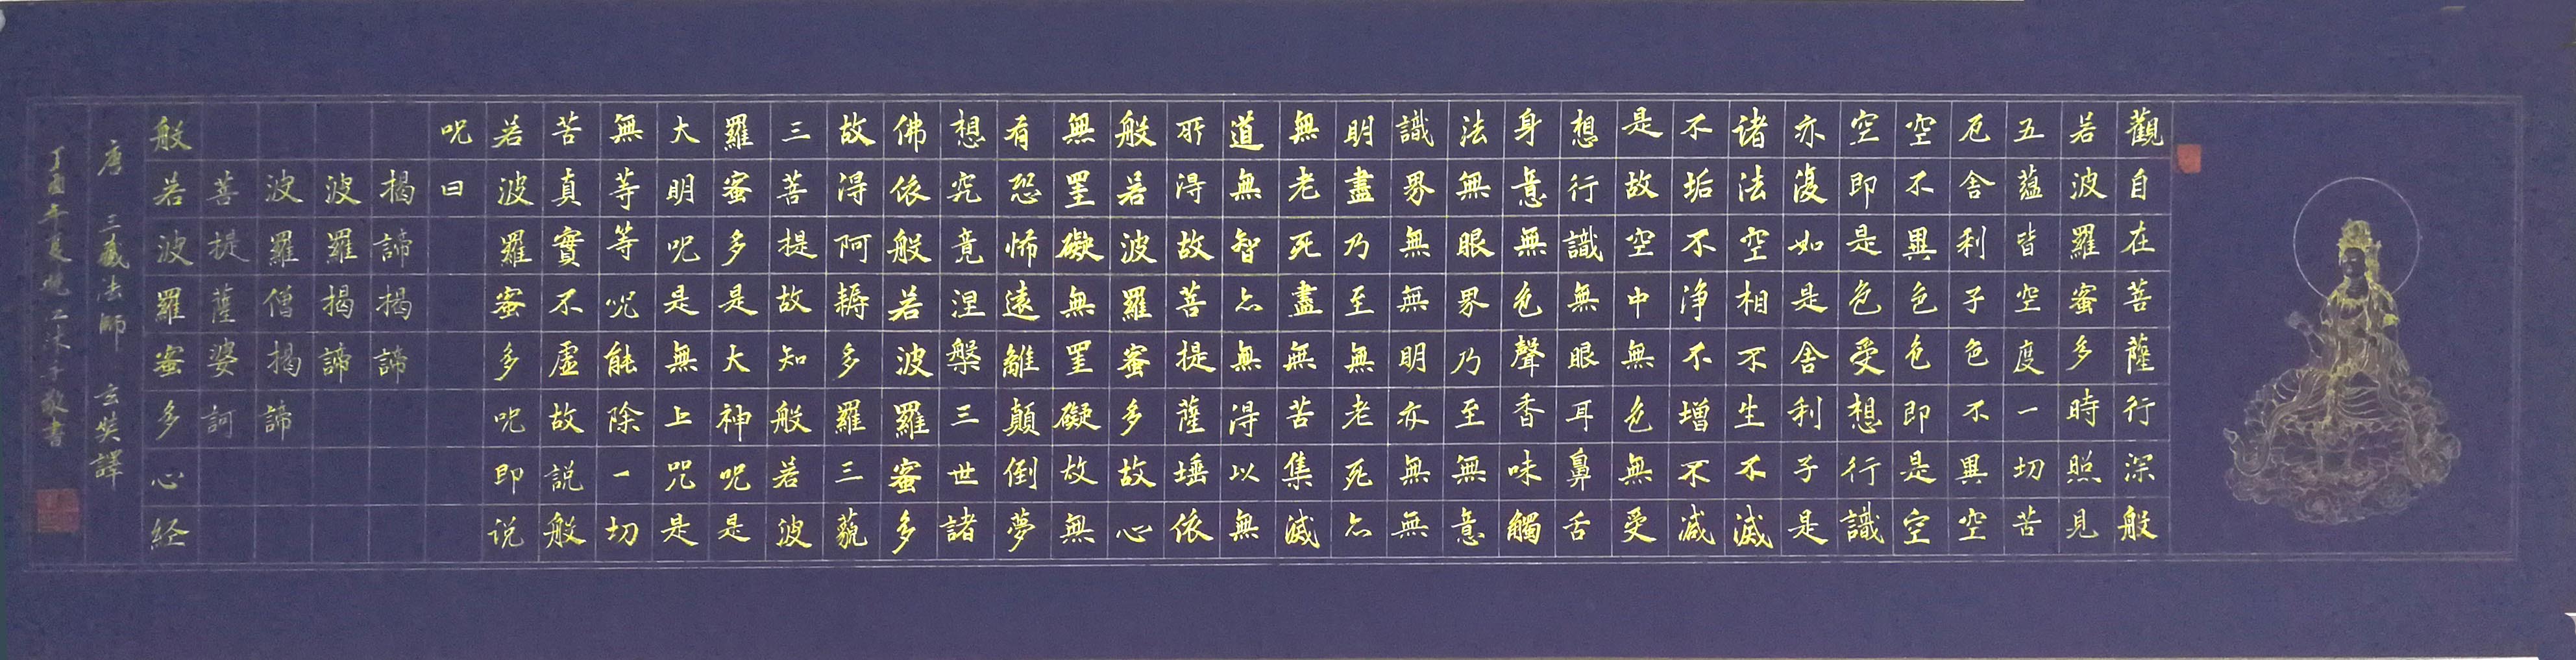 觀自在菩薩行深般
若波羅蜜多時照見
五蘊皆空度一切苦
厄舍利子色不異空
空不異色色即是空
空即是色受想行識
亦復如是舍利子是
諸法空相不生不滅
不垢不淨不增不減
是故空中無色無受
想行識無眼耳鼻舌
身意無色聲香味觸
法無眼界乃至無意
識界無無明亦無無
明盡乃至無老死亦
無老死盡無苦集滅
道無智亦無得以無
所得故菩提薩埵依
般若波羅蜜多故心
無罣礙無罣礙故無
有恐怖遠離顛倒夢
想究竟涅槃三世諸
佛依般若波羅蜜多
故得阿耨多羅三藐
三菩提故知般若波
羅蜜多是大神咒是
大明咒是無上咒是
無等等咒能除一切
苦真實不虛故說般
若波羅蜜多咒即说
咒曰
揭諦揭諦
波羅揭諦
波羅僧揭諦
菩提薩婆訶
般若波羅蜜多心经
唐 三藏法師 玄奘譯
丁酉年夏木子敬書